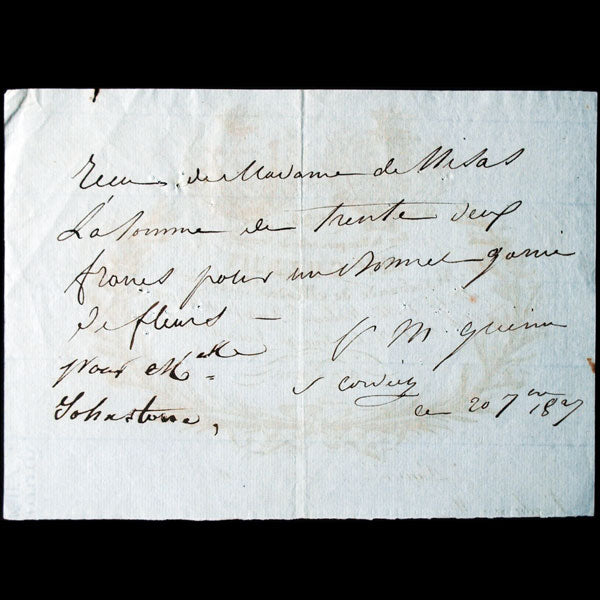 recu de Madame de
La somme de trente deux
francs pour un Bonnet garni
de fleurs —
pour Melle
Johastone,
ce 20 7bre 1827